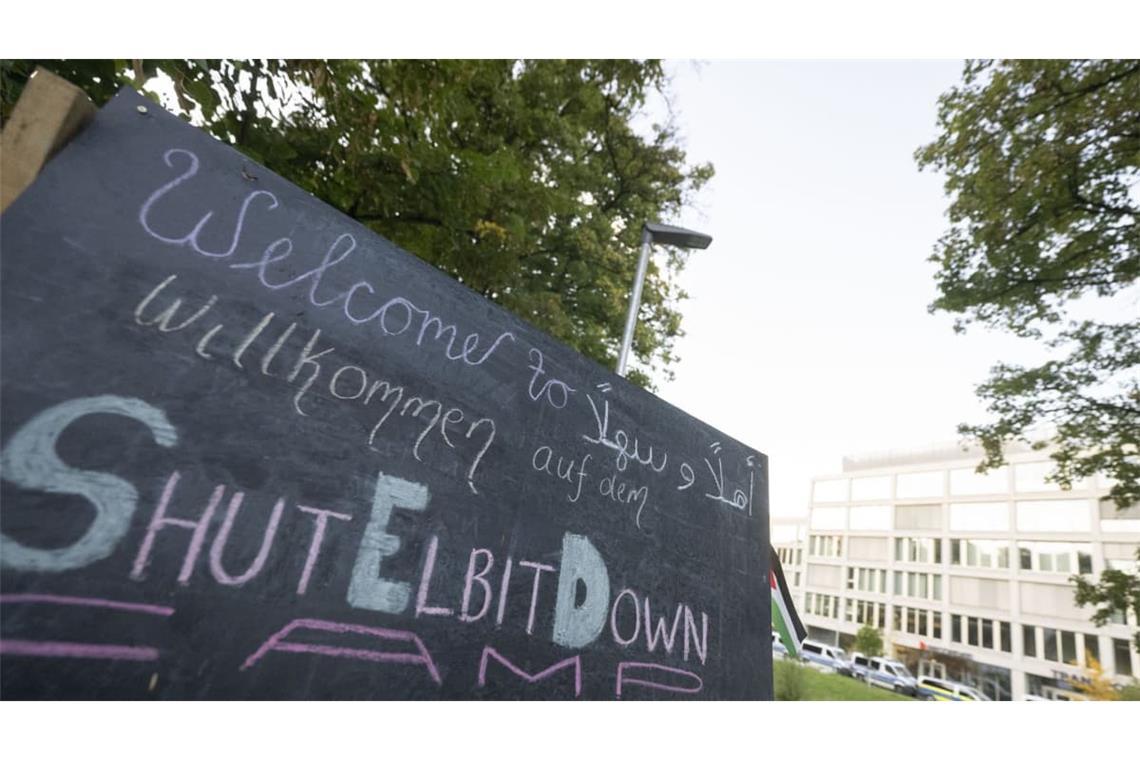 Welcome to
أهلاً و سهلاً
Willkommen auf dem
SHUT ELBIT DOWN
CAMP